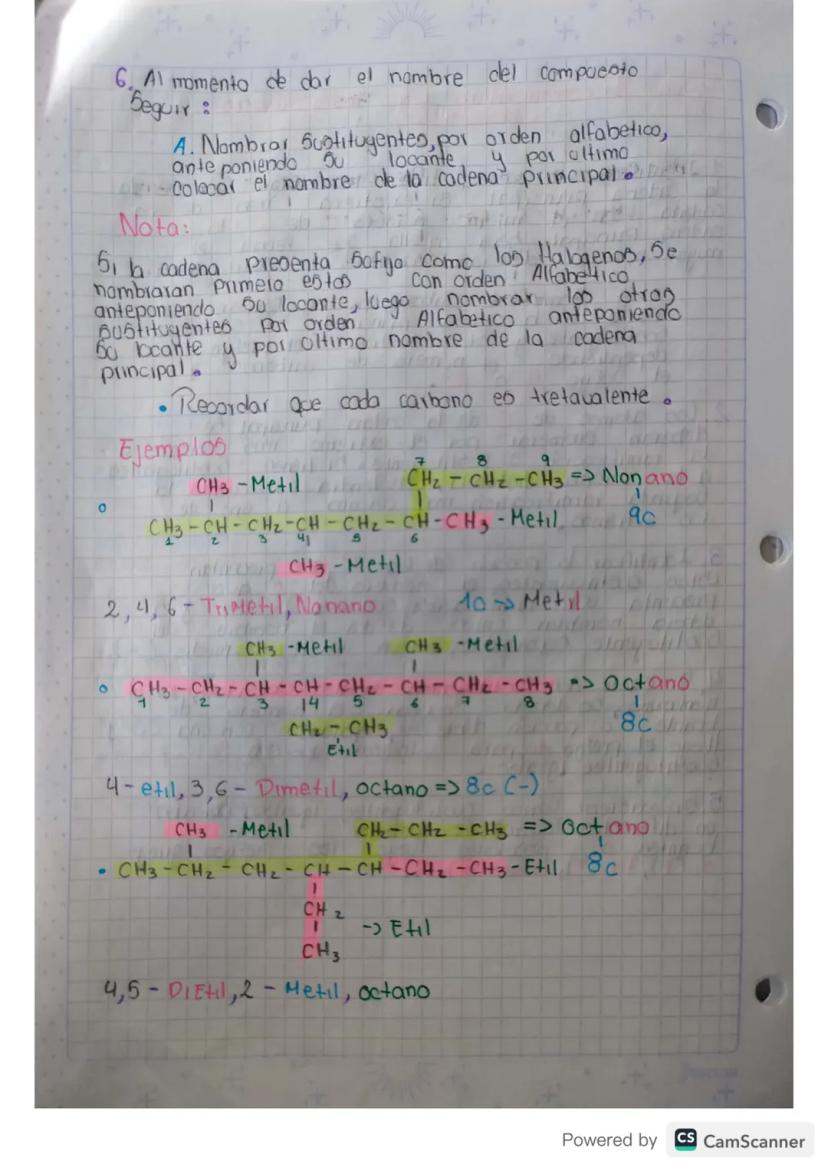 6. Al momento de dar el nombre del compuesto
Seguir:
A. Nombrar Sustituyentes, por orden alfabetico,
anteponiendo su locante, y por ultimo
colocar el nombre de la cadena principal.
Nota:
Si la cadena presenta Sofijo como los Halogenos, Se
nombraran primero estos con orden Alfabetico
anteponiendo su locante, luego nombrar los otros
sustituyentes por orden Alfabetico anteponiendo
su locante y por ultimo nombre de la cadena
principal.
• Recordar que cada carbono es tretavalente.
Ejemplos
7 8 9
CH3 -Metil CH2 - CH2 - CH3 => Nonano
CH3 - CH - CH2 - CH - CH2 - CH - CH3 - Metil 9c
1 2 3 4 5 6
CH3 -Metil
2,4,6- TriMetil, Nonano 1c -> Metil
CH3 -Metil CH3 -Metil
CH3 - CH2 - CH - CH - CH2 - CH - CH2 - CH3 => Octano
1 2 3 14 5 6 7 8 8c
CH2 - CH3
Etil
4- etil, 3,6- Dimetil, octano => 8c (-)
CH3 -Metil CH2 - CH2 - CH3 => Octano
• CH3 - CH2 - CH2 - CH - CH - CH2 - CH3 - Etil 8c
CH2
-> Etil
CH3
4,5- DiEtil, 2- Metil, octano
Powered by CS CamScanner